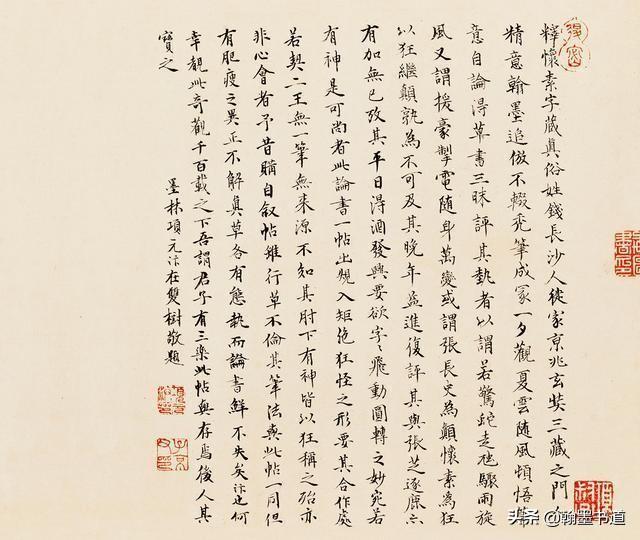 釋懷素字藏真俗姓錢長沙人徙家京兆玄奘三藏之門人
精意翰墨追倣不輟禿筆成冢一夕觀夏雲隨風頓悟筆
意自論得草書三昧評其執者以謂若驚蛇走虺驟雨旋
風又謂援豪掣電隨身萬變或謂張長史為顛懷素為狂
以狂繼顛孰為不可及其晚年益進復評其與張芝逐鹿亦
有加無已攷其平日得酒發興要欲字〻飛動圓轉之妙宛若
有神是可尚者此論書一帖出規入矩絕狂怪之形要其合作處
若契二王無一筆無來源不知其肘下有神皆以狂稱之殆亦
非心會者予昔購自叙帖雖行草不倫其筆法與此帖一同但
有肥瘦之異正不解真草各有態執而論書鮮不失矣汴之何
幸覩此奇觀千百載之下吾謂君子有三樂此帖與存焉後人其
寶之
墨林項元汴在雙樹敬題
头条 @翰墨书道